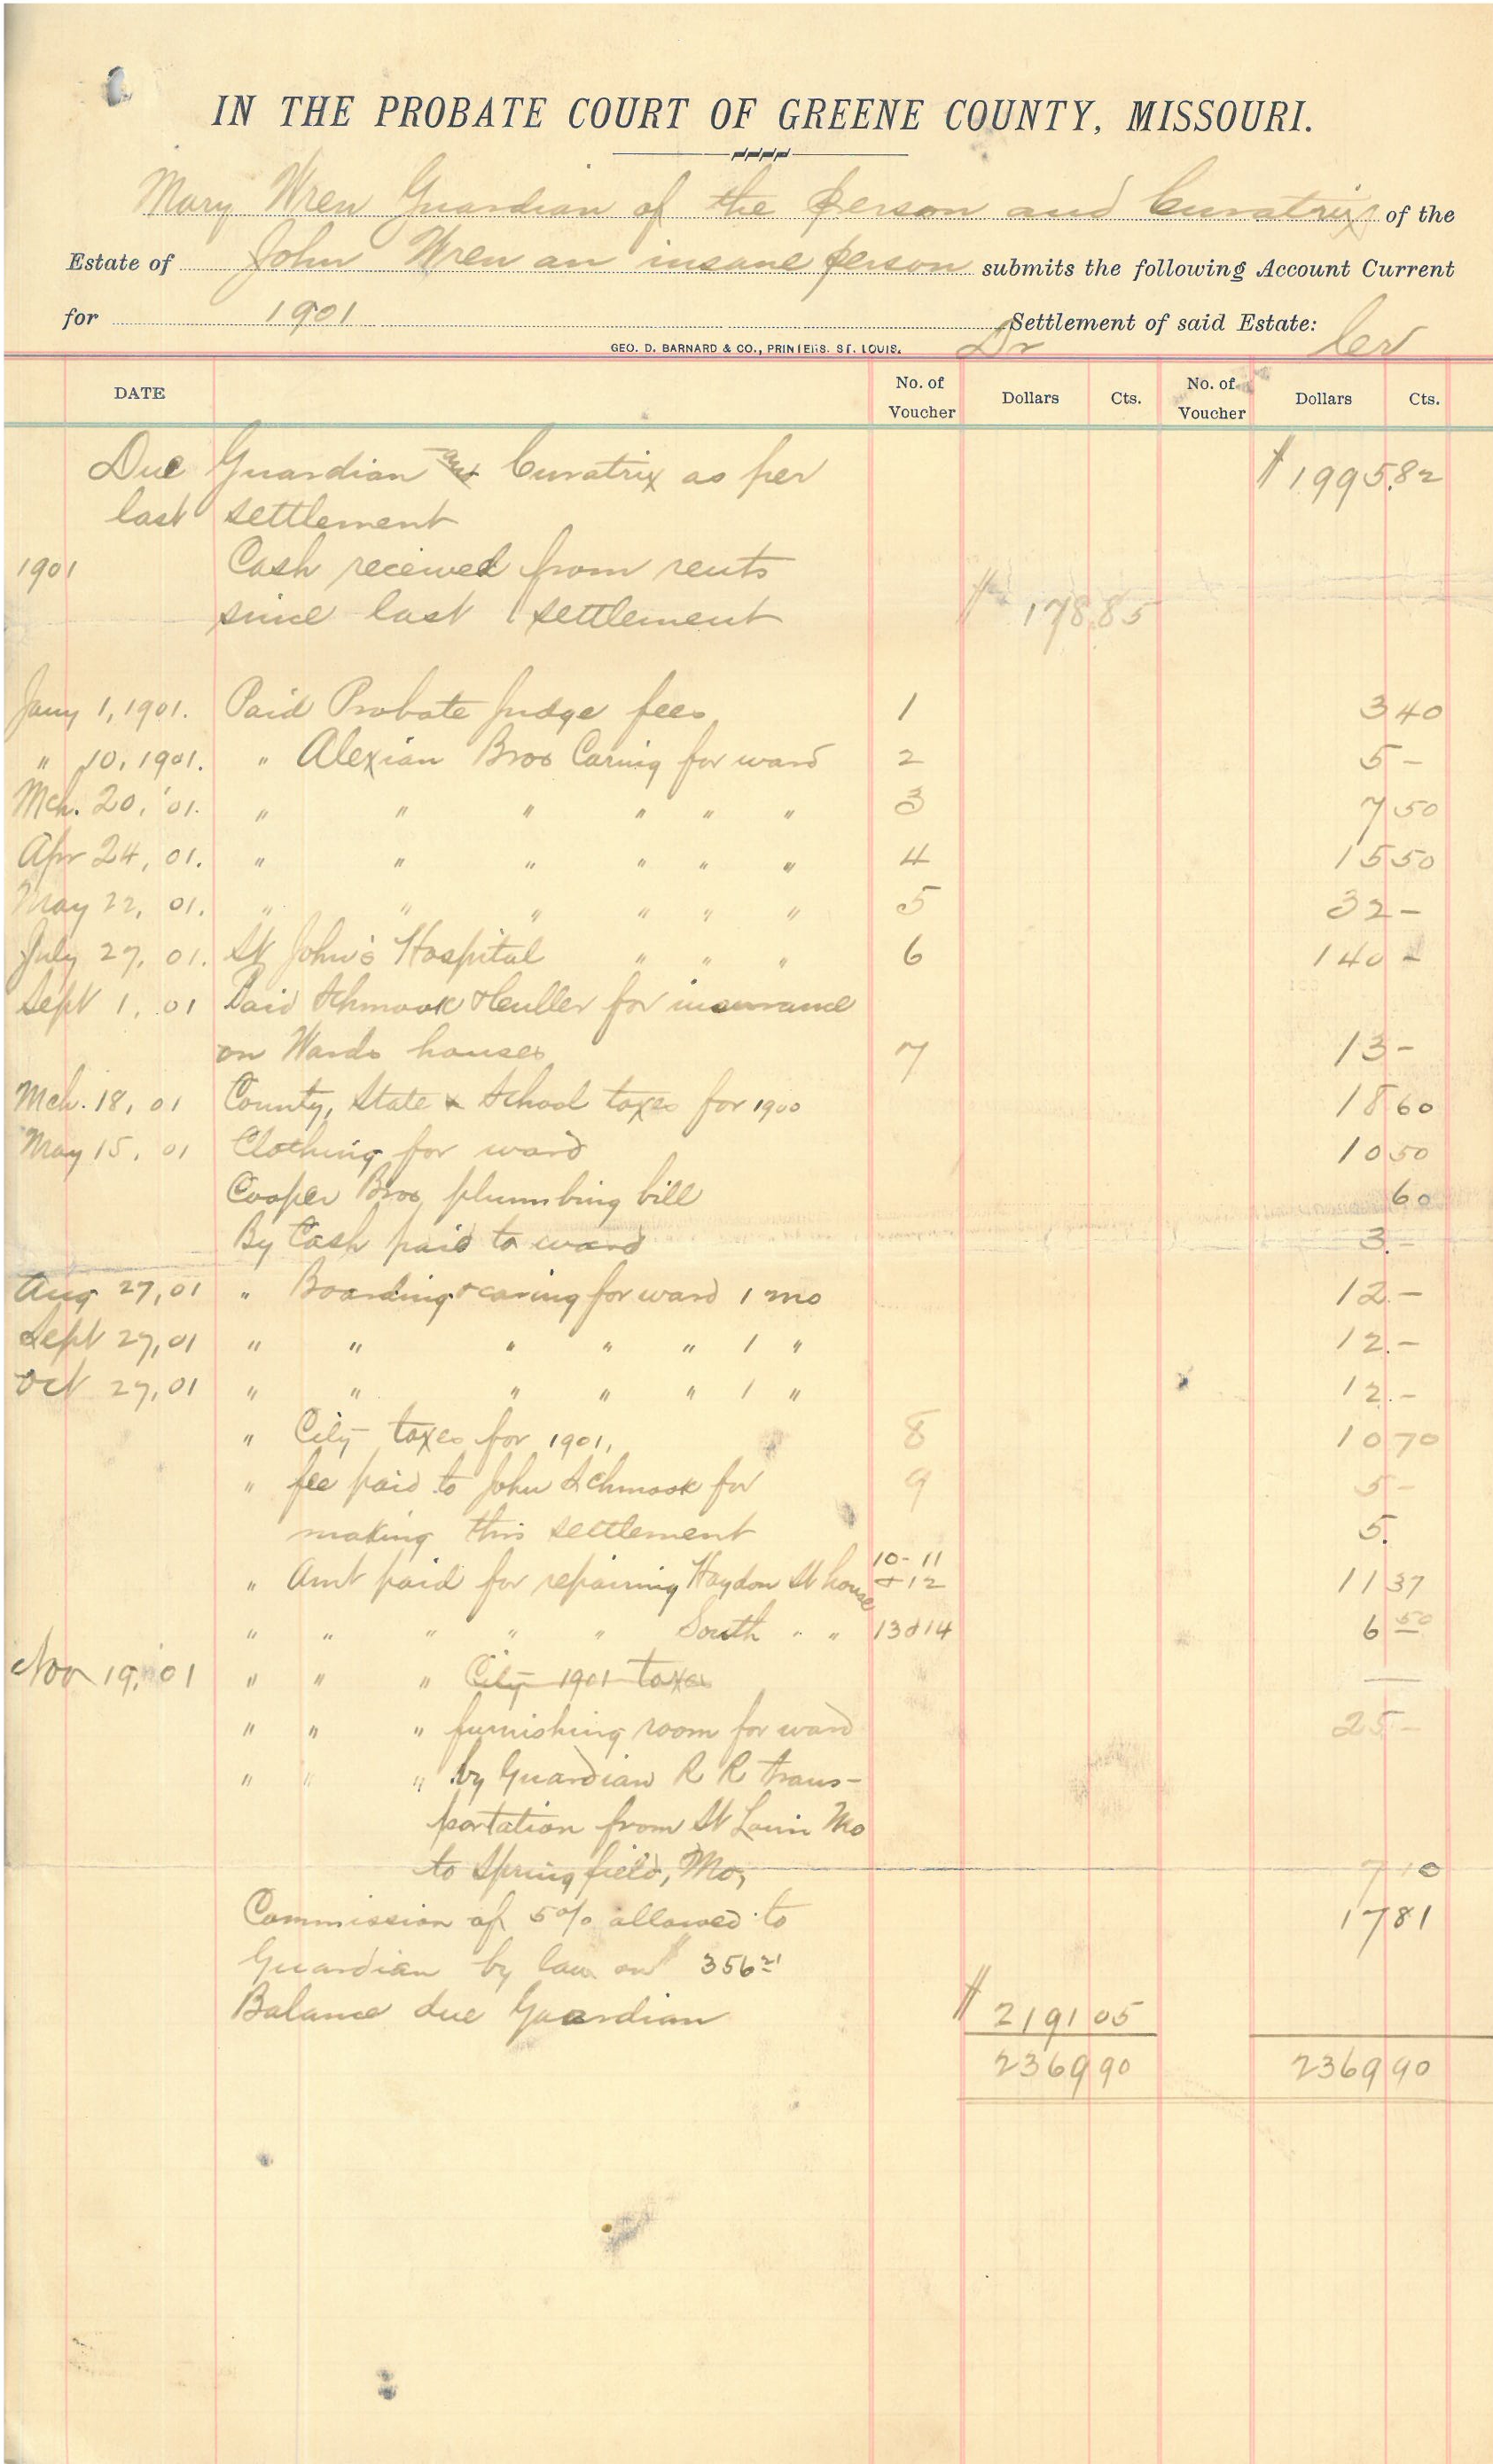 IN THE PROBATE COURT OF GREENE COUNTY, MISSOURI.
Mary Wren Guardian of the person and Curatrix of the
Estate of John Wren an insane person submits the following Account Current
for 1901 Settlement of said Estate:
GEO. D. BARNARD & CO., PRINTERS. ST. LOUIS. Dr Cr
DATE No. of Voucher Dollars Cts. No. of Voucher Dollars Cts.
Due Guardian and Curatrix as per $1995.82
last settlement
1901 Cash received from rents
since last settlement $ 178.85
Jany 1, 1901. Paid Probate Judge fees 1 3 40
" 10, 1901. " Alexian Bros Caring for ward 2 5 -
Mch. 20, '01. " " " " " " 3 7 50
Apr 24, 01. " " " " " " 4 15 50
May 22, 01. " " " " " " 5 32 -
July 27, 01. St John's Hospital " " " 6 140 -
Sept 1, 01 Paid Schmook & Culler for insurance
on Wards houses 7 13 -
Mch. 18, 01 County, State & School taxes for 1900 18 60
May 15, 01 Clothing for ward 10 50
Cooper Bros plumbing bill 60
By Cash paid to ward 3.-
Aug 27, 01 " Boarding & caring for ward 1 mo 12.-
Sept 27, 01 " " " " " 1 " 12.-
Oct 27, 01 " " " " " 1 " 12.-
" City taxes for 1901, 8 10 70
" fee paid to John Schmook for 9 5 -
making this settlement 5.
" Amt paid for repairing Haydon St house 10-11 +12 11 37
" " " " " South " " 13&14 6 50
Nov 19, 01 " " " City 1901 taxes —
" " " furnishing room for ward 25 -
" " " by Guardian R R trans-
portation from St Louis Mo
to Springfield, Mo, 7 10
Commission of 5% allowed to 17 81
Guardian by law on $356 21
Balance due Guardian $ 2191 05
2369 90 2369 90